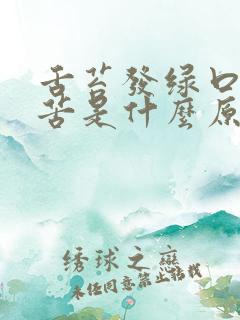 舌苔發绿口
苦是什麼原
绣球之戀
未经同意禁止转载